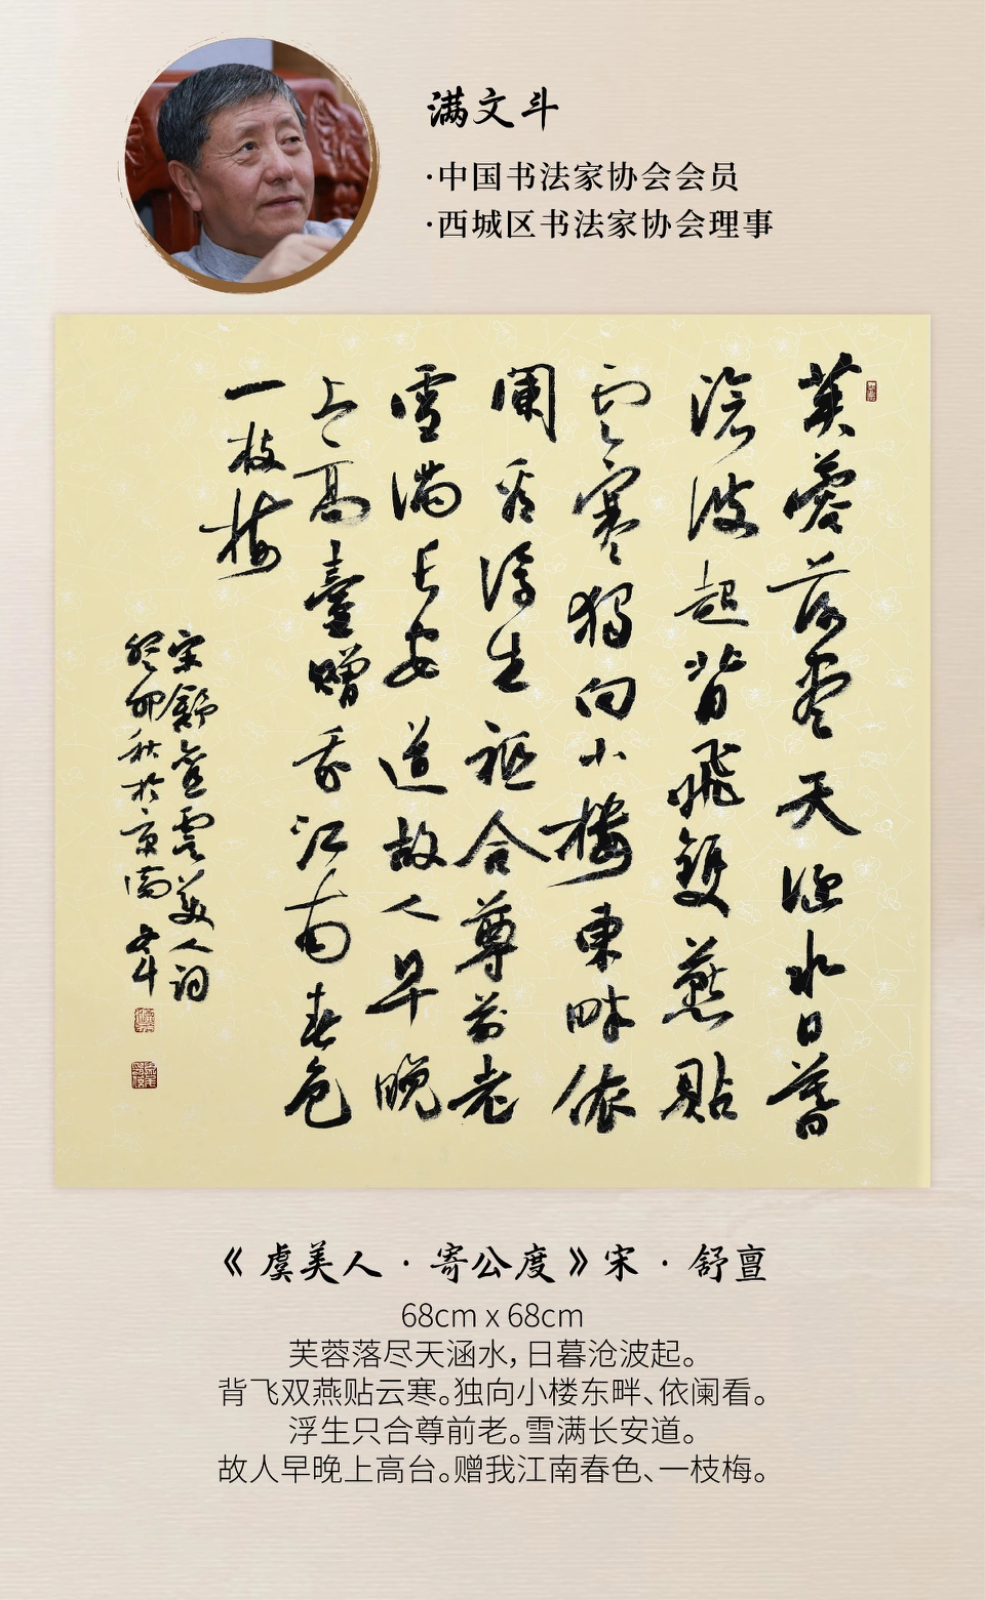 满文斗
·中国书法家协会会员
·西城区书法家协会理事
芙蓉落尽天涵水日暮
滄波起背飛雙燕貼
雲寒獨向小樓東畔依
闌看浮生祗合尊前老
雪满長安道故人早晚
上高臺赠我江南春色
一枝梅
宋舒亶虞美人词
癸卯秋於京南 文斗
《虞美人·寄公度》宋·舒亶
68cm x 68cm
芙蓉落尽天涵水，日暮沧波起。
背飞双燕贴云寒。独向小楼东畔、依阑看。
浮生只合尊前老。雪满长安道。
故人早晚上高台。赠我江南春色、一枝梅。